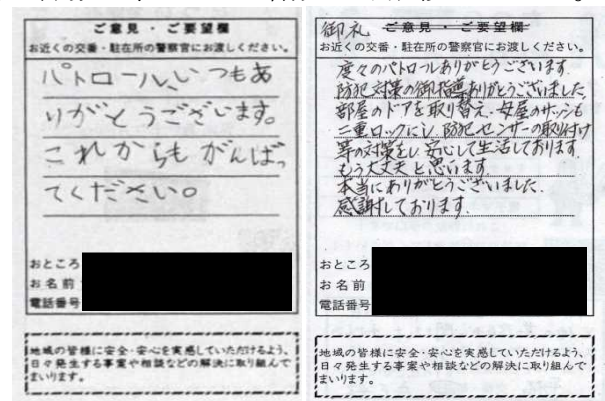 ご意見・ご要望欄
お近くの交番・駐在所の警察官にお渡しください。
パトロール、いつもあ
りがとうございます。
これからもがんばっ
てください。
おところ
お名前
電話番号
地域の皆様に安全・安心を実感していただけるよう、
日々発生する事案や相談などの解決に取り組んで
まいります。
御礼 ご意見・ご要望欄
お近くの交番・駐在所の警察官にお渡しください。
度々のパトロールありがとうございます。
防犯対策の御指導ありがとうございました。
部屋のドアを取り替え、母屋のサッシも
二重ロックにし、防犯センサーの取り付け
等の対策をし、安心して生活しております。
もう大丈夫と思います。
本当にありがとうございました。
感謝しております。
おところ
お名前
電話番号
地域の皆様に安全・安心を実感していただけるよう、
日々発生する事案や相談などの解決に取り組んで
まいります。